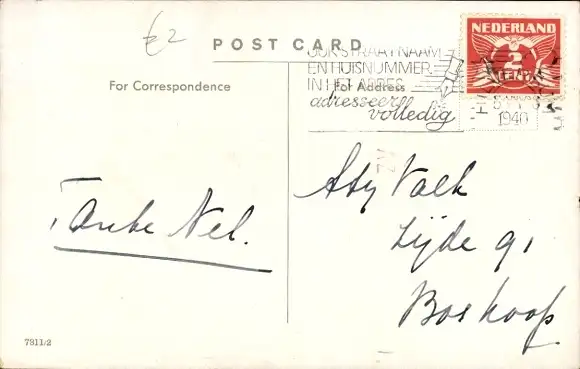 £2
POST CARD
NEDERLAND
2
CENT
OOK STRAATNAAM
EN HUISNUMMER
IN HET ADRES
adresseer
volledig
1940
For Correspondence
For Address
Tante Nel.
Aty Valk
Zijde 91
Boskoop
7811/2